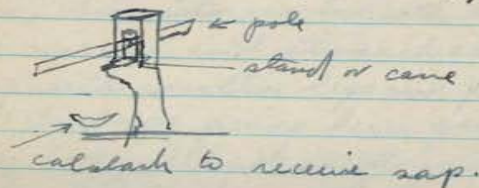 pole
stand or cane
calabash to receive sap.